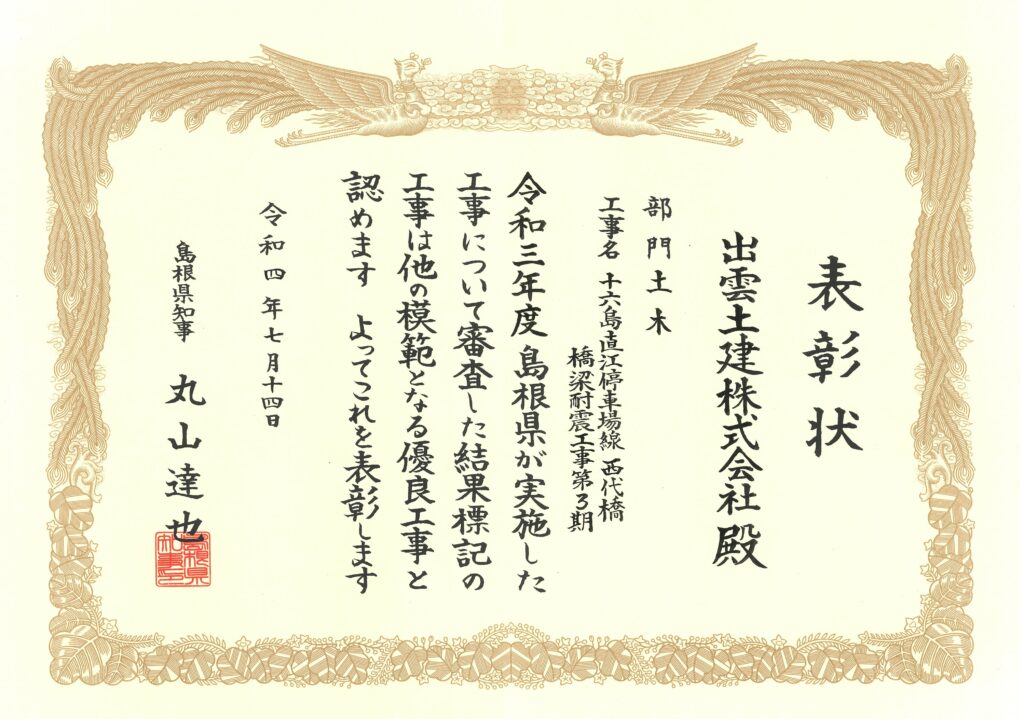 表彰状
出雲土建株式会社 殿
部門 土木
工事名 十六島直江停車場線 西代橋
橋梁耐震工事第3期
令和三年度 島根県が実施した
工事について審査した結果標記の
工事は他の模範となる優良工事と
認めます よってこれを表彰します
令和四年七月十四日
島根県知事 丸山達也
島根県
知事之印